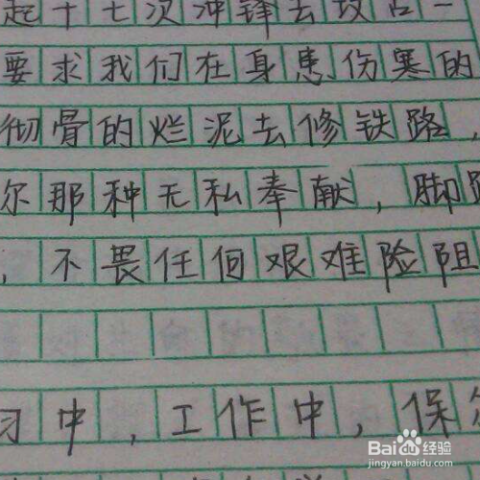 起十七次冲锋去攻占一
要求我们在身患伤寒的
彻骨的烂泥去修铁路，
尔那种无私奉献，脚踏
，不畏任何艰难险阻
习中，工作中，保尔
Baidu经验
jingyan.baidu.com